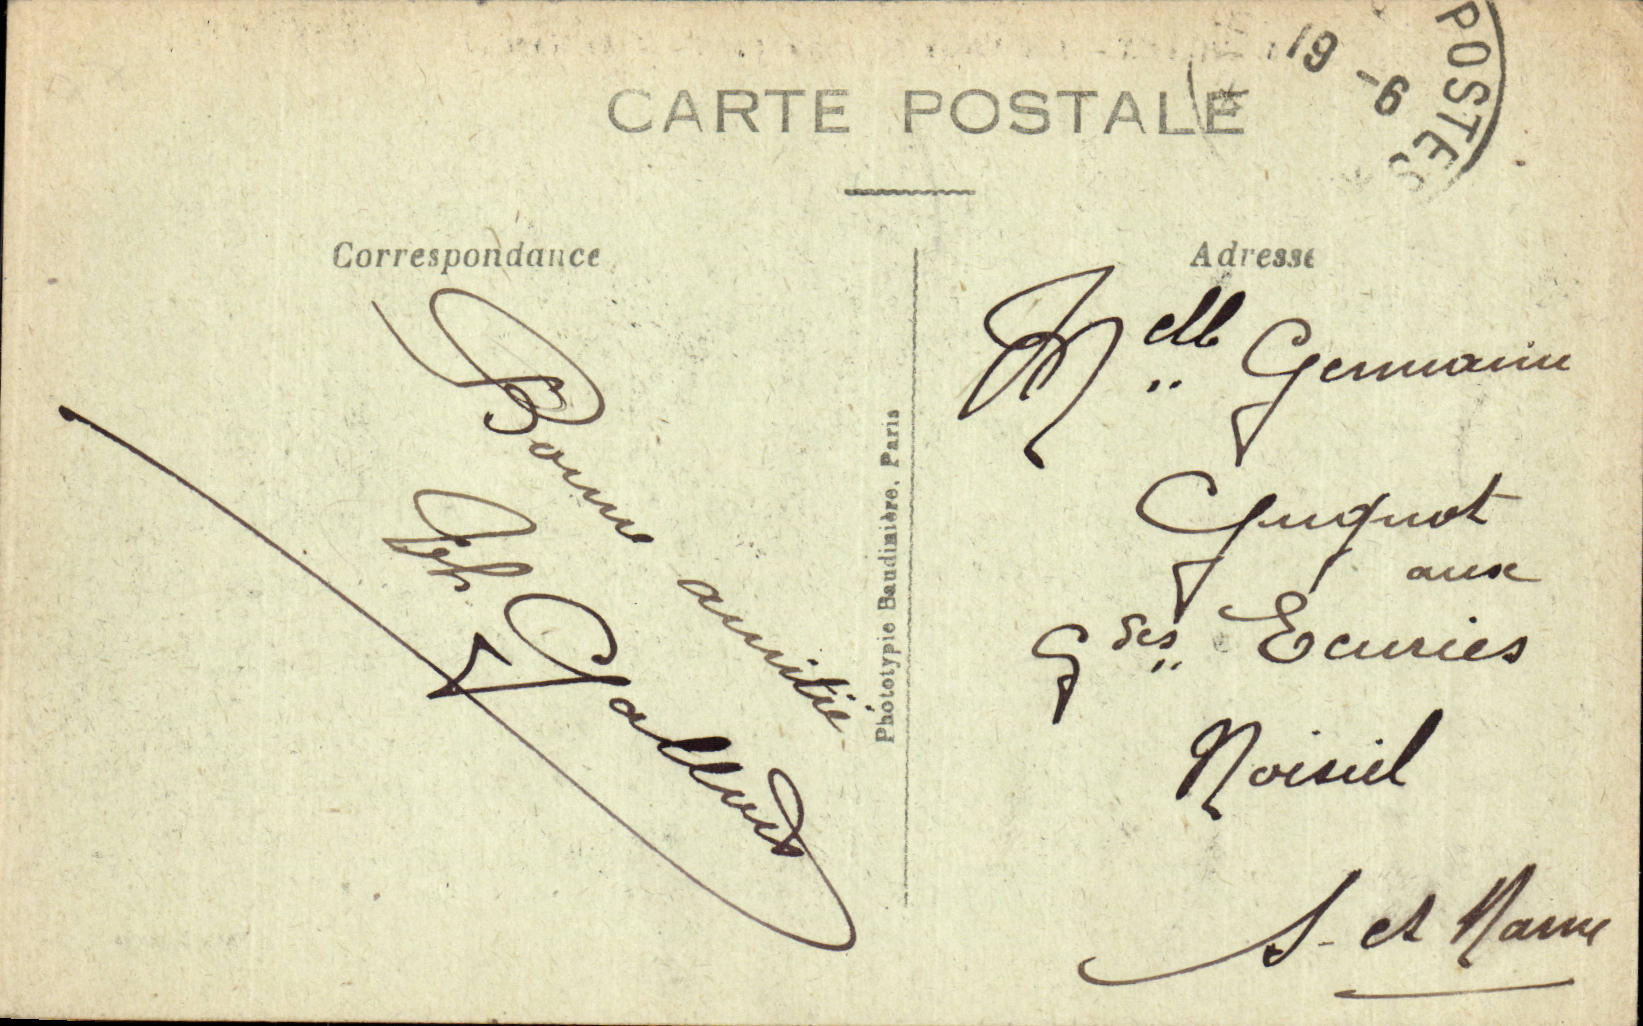 CARTE POSTALE
19 -6
POSTES
Correspondance
Bonne amitié
Gallois
Phototypie Baudinière, Paris
Adresse
Melle Germaine
Guignot
aux
Gdes Ecuries
Noisiel
S. et Marne